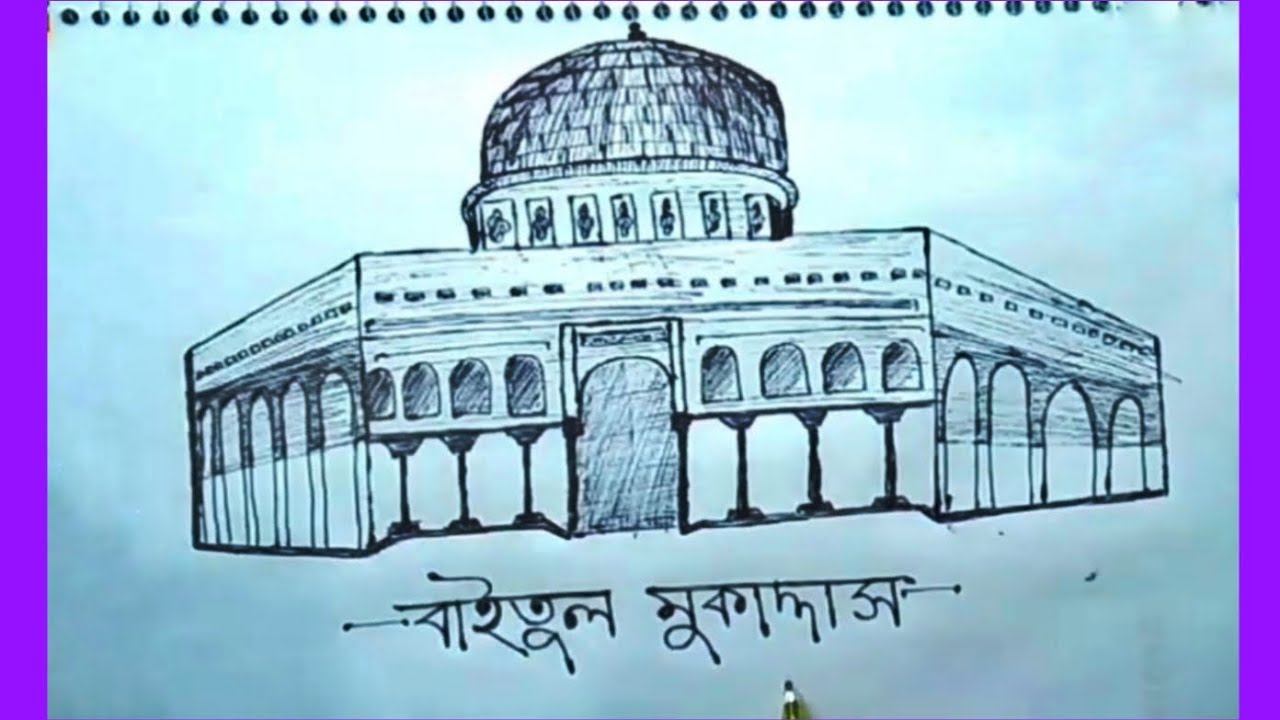 বাইতুল মুকাদ্দাস